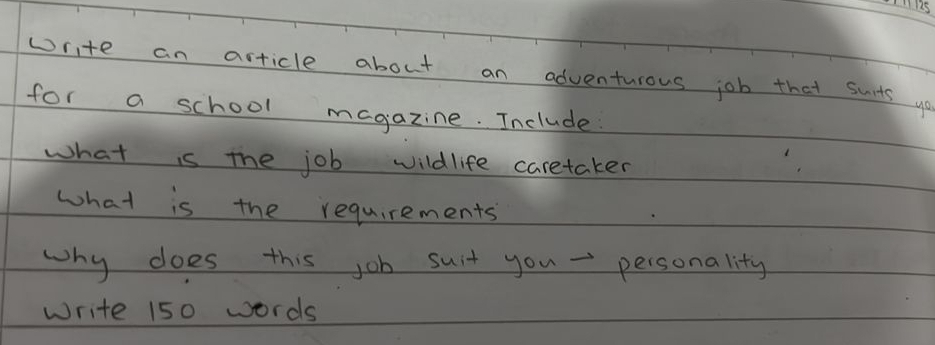 Write an article about an adventurous job that suits
for a school magazine. Include:
what is the job wildlife caretaker
what is the requirements
why does this job suit you → personality
write 150 words